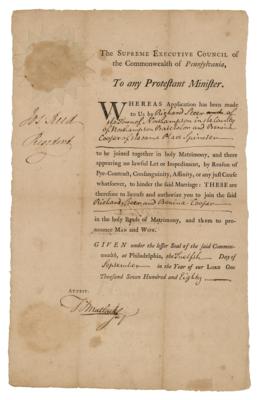 The Supreme Executive Council of
the Commonwealth of Pennsylvania,
To any Protestant Minister.
WHEREAS Application has been made
to Us by Richard
the Town of Northampton in the County
of Northampton Batchelor and
Cooper of the same Place Spinster
to be joined together in holy Matrimony, and there
appearing no lawful Let or Impediment, by Reason of
Pre-Contract, Consanguinity, Affinity, or any just Cause
whatsoever, to hinder the said Marriage: THESE are
therefore to licence and authorize you to join the said
Richard and Cooper
in the holy Bands of Matrimony, and them to pronounce Man and Wife.
GIVEN under the lesser Seal of the said Common-
wealth, at Philadelphia, the Twelfth Day of
September in the Year of our LORD One
Thousand Seven Hundred and Eighty
Jos. Reed
President
ATTEST.
T Matlack